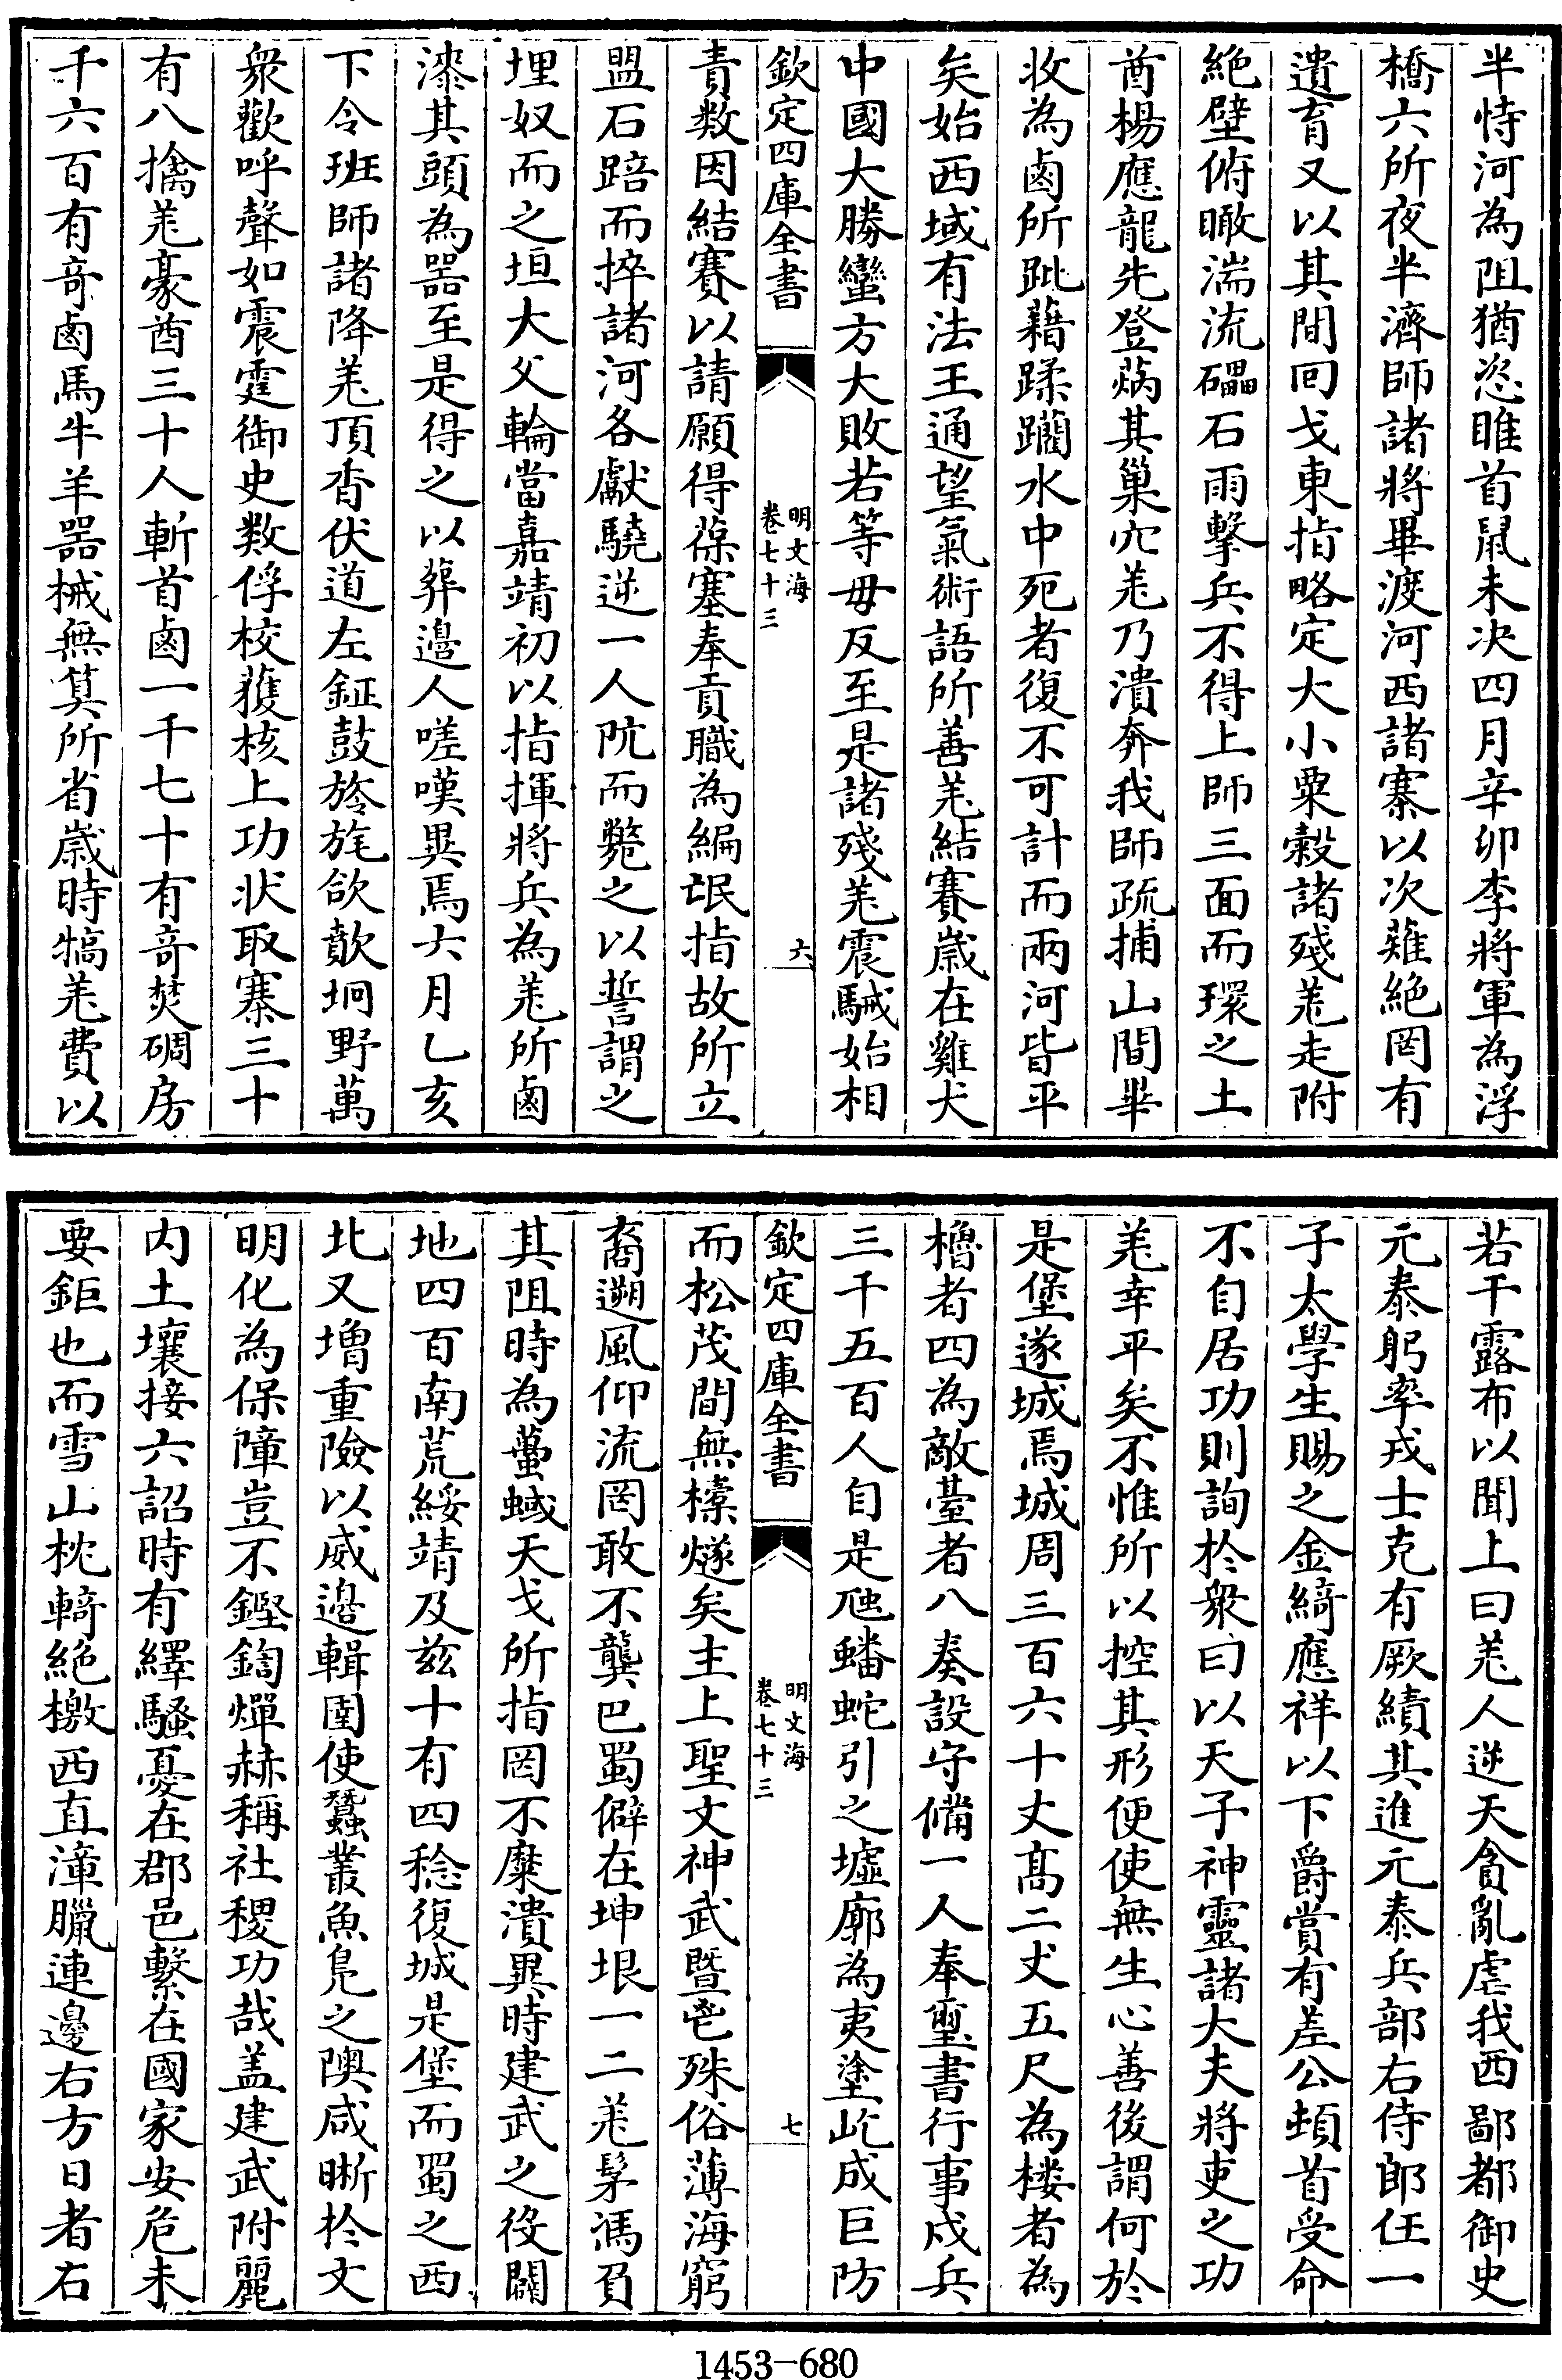 半恃河為阻猶恣睢首鼠未决四月辛卯李將軍為浮
橋六所夜半濟師諸將畢渡河西諸寨以次薙絶罔有
遺育又以其間回戈東指略定大小粟榖諸殘羌走附
絶壁俯瞰湍流礧石雨擊兵不得上師三面而環之土
酋楊應龍先登爇其巢穴羌乃潰奔我師疏捕山間畢
收為鹵所跐藉蹂躪水中死者復不可計而兩河皆平
矣始西域有法王通望氣術語所善羌結賽歳在雞犬
中國大勝蠻方大敗若等毋反至是諸殘羌震駴始相
欽定四庫全書
明文海
卷七十三
六
責数因結賽以請願得葆塞奉貢職為編氓指故所立
盟石踣而捽諸河各獻驍逆一人阬而斃之以誓謂之
埋奴而之垣大父輪當嘉靖初以指揮將兵為羌所鹵
漆其頭為器至是得之以葬邉人嗟嘆異焉六月乙亥
下令班師諸降羌頂沓伏道左鉦鼓旍旄欱歕坰野萬
衆歡呼聲如震霆御史数俘校蒦核上功状取寨三十
有八擒羌豪酋三十人斬首鹵一千七十有竒焚碉房
千六百有竒鹵馬牛羊噐械無筭所省歳時犒羌費以
若干露布以聞上曰羌人逆天貪亂虐我西鄙都御史
元泰躬率戎士克有厥績其進元泰兵部右侍郎任一
子太學生賜之金綺應祥以下爵賞有差公頓首受命
不自居功則詢於衆曰以天子神靈諸大夫將吏之功
羌幸平矣不惟所以控其形便使無生心善後謂何於
是堡遂城焉城周三百六十丈髙二丈五尺為楼者為
櫓者四為敵臺者八奏設守備一人奉璽書行事戍兵
三千五百人自是虺蟠蛇引之墟廓為夷塗屹成巨防
欽定四庫全書
明文海
卷七十三
七
而松茂間無櫜燧矣主上聖文神武暨鬯殊俗薄海窮
裔遡風仰流罔敢不龔巴蜀僻在坤垠一二羌髳馮負
其阻時為蠆蜮天戈所指罔不糜潰異時建武之役闢
地四百南荒綏靖及兹十有四稔復城是堡而蜀之西
北又增重險以威邉輯圉使蠶叢魚鳬之隩咸晣於文
明化為保障豈不鏗鍧燀赫稱社稷功哉盖建武附麗
内土壤接六詔時有繹騷憂在郡邑繫在國家安危未
要鉅也而雪山枕輢絶檄西直漳臘連邊右方曰者右
1453-680